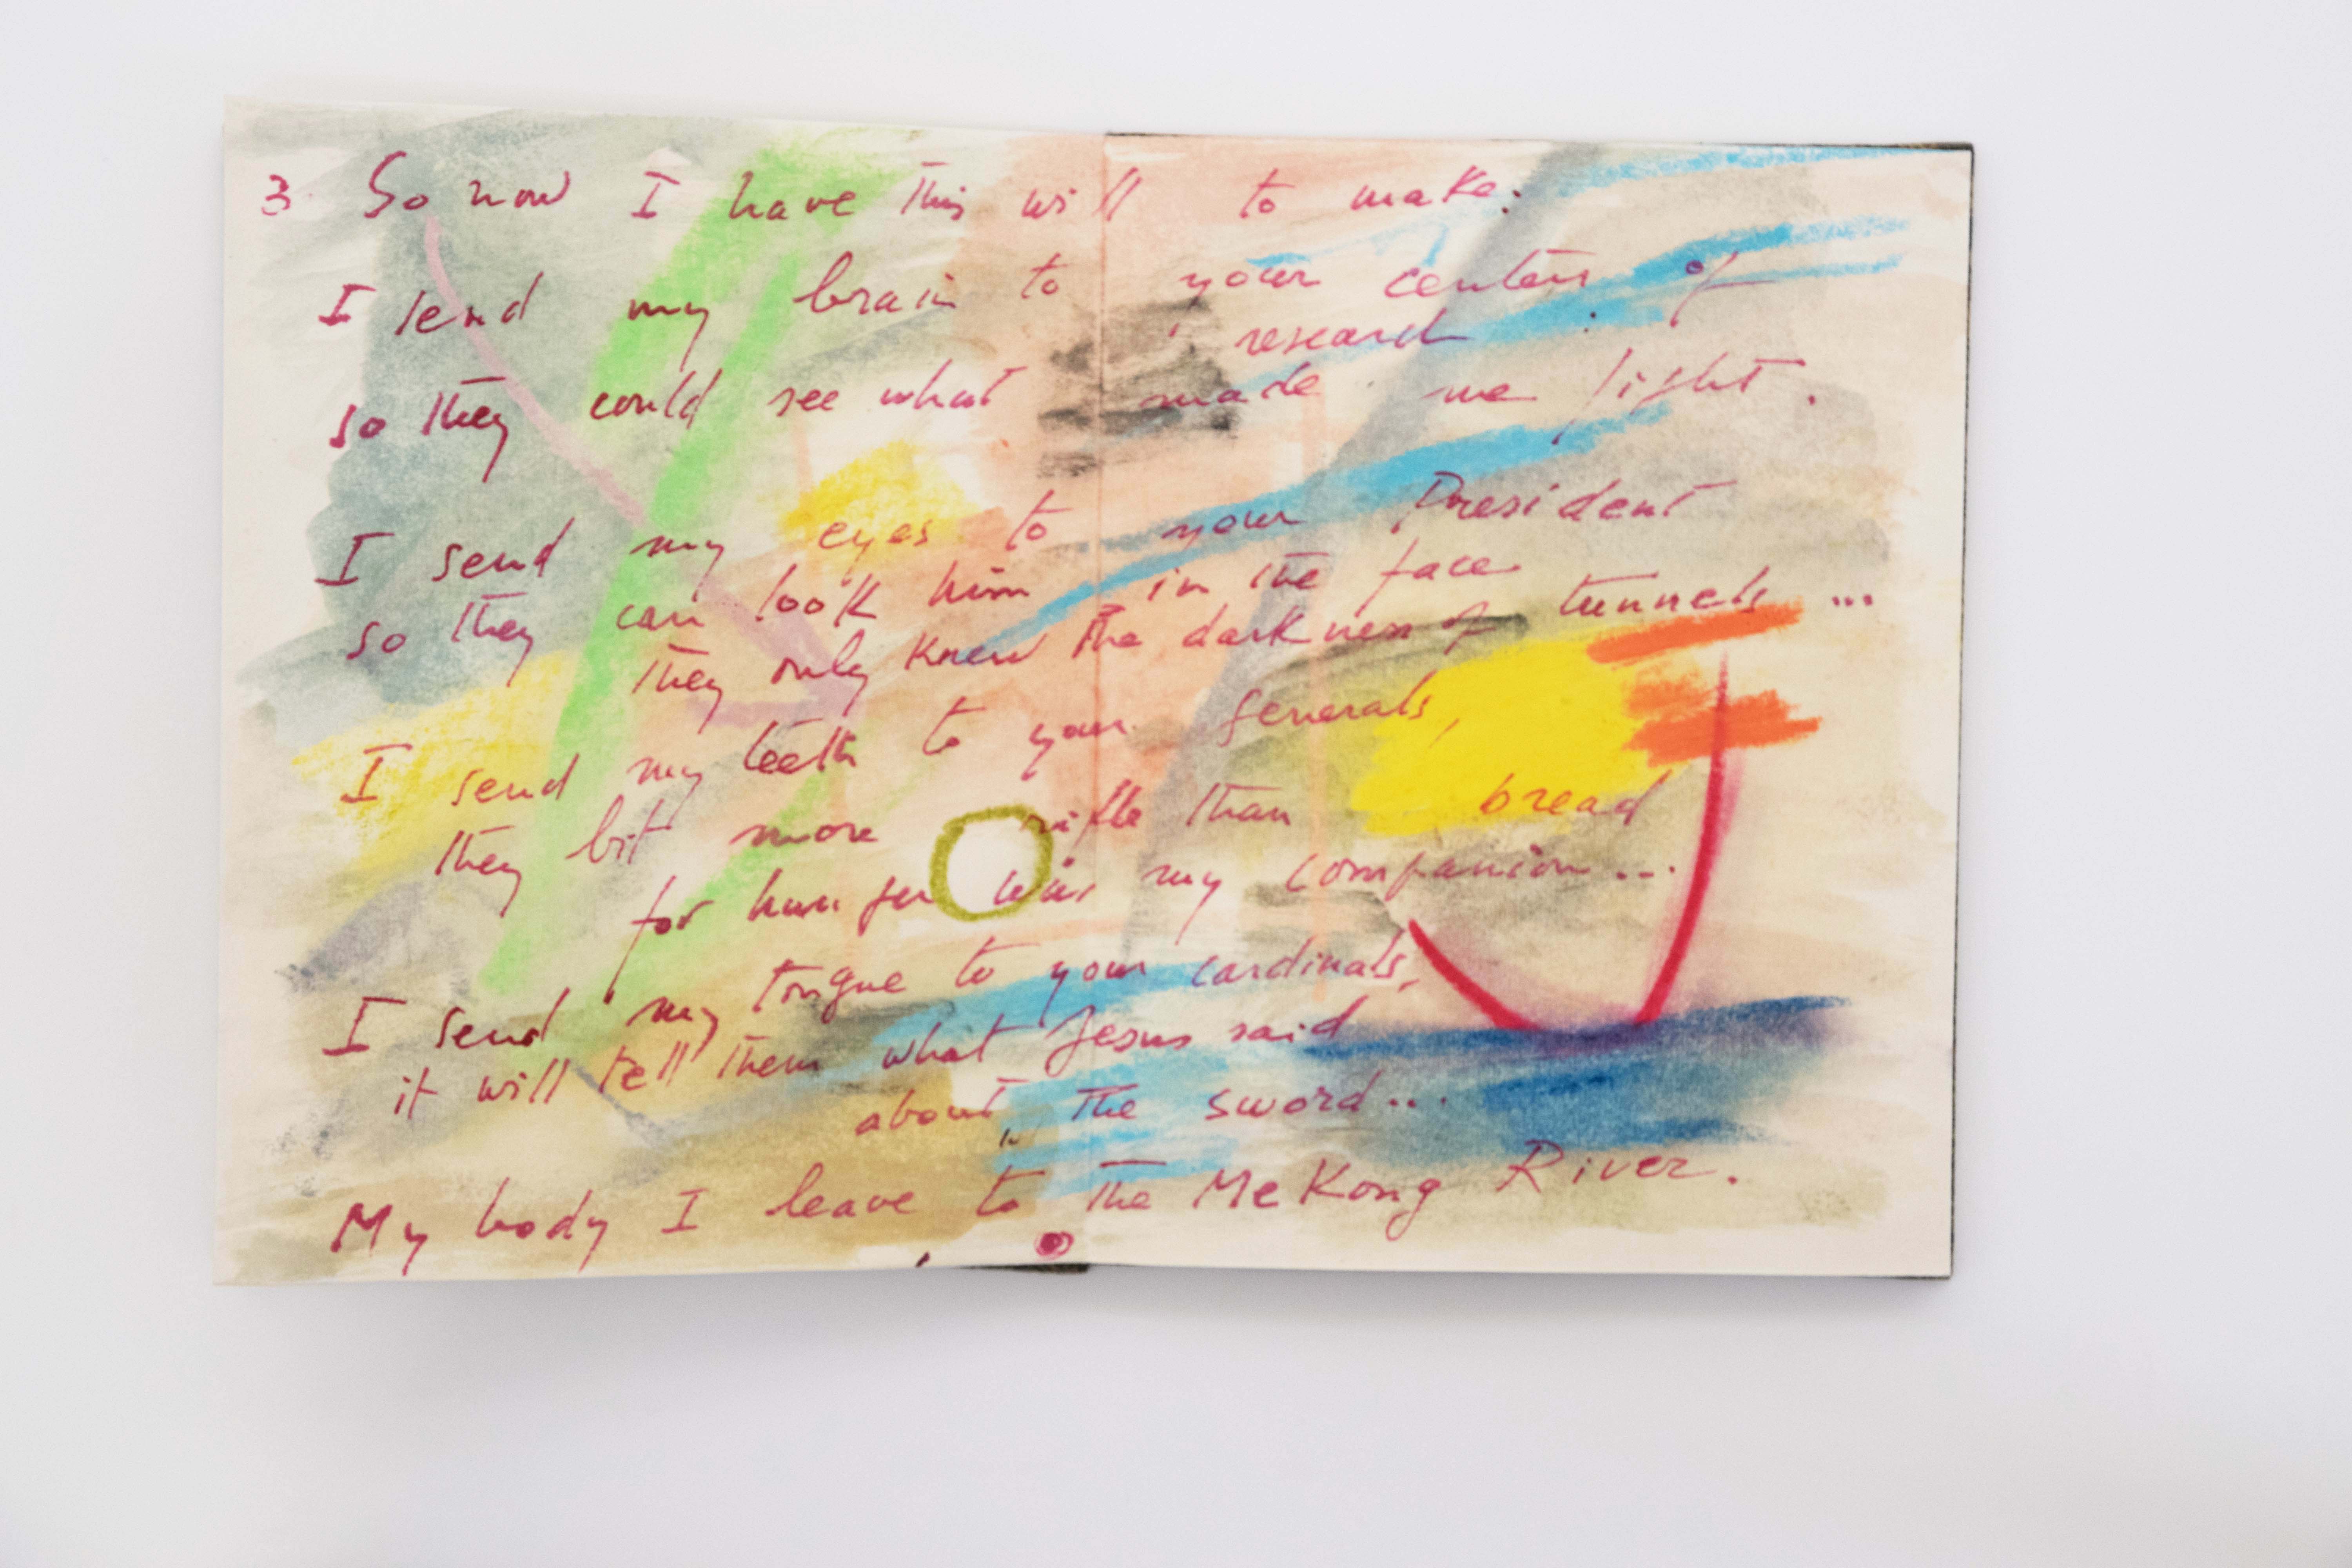 3. So now I have this will to make:
I send my brain to your centers of
research
so they could see what made me fight.
I send my eyes to your President
so they can look him in the face
they only knew the darkness of tunnels ...
I send my teeth to your generals,
they bit more rifle than bread
for hunger was my companion...
I send my tongue to your cardinals,
it will tell them what Jesus said
about the sword...
My body I leave to the MeKong River.